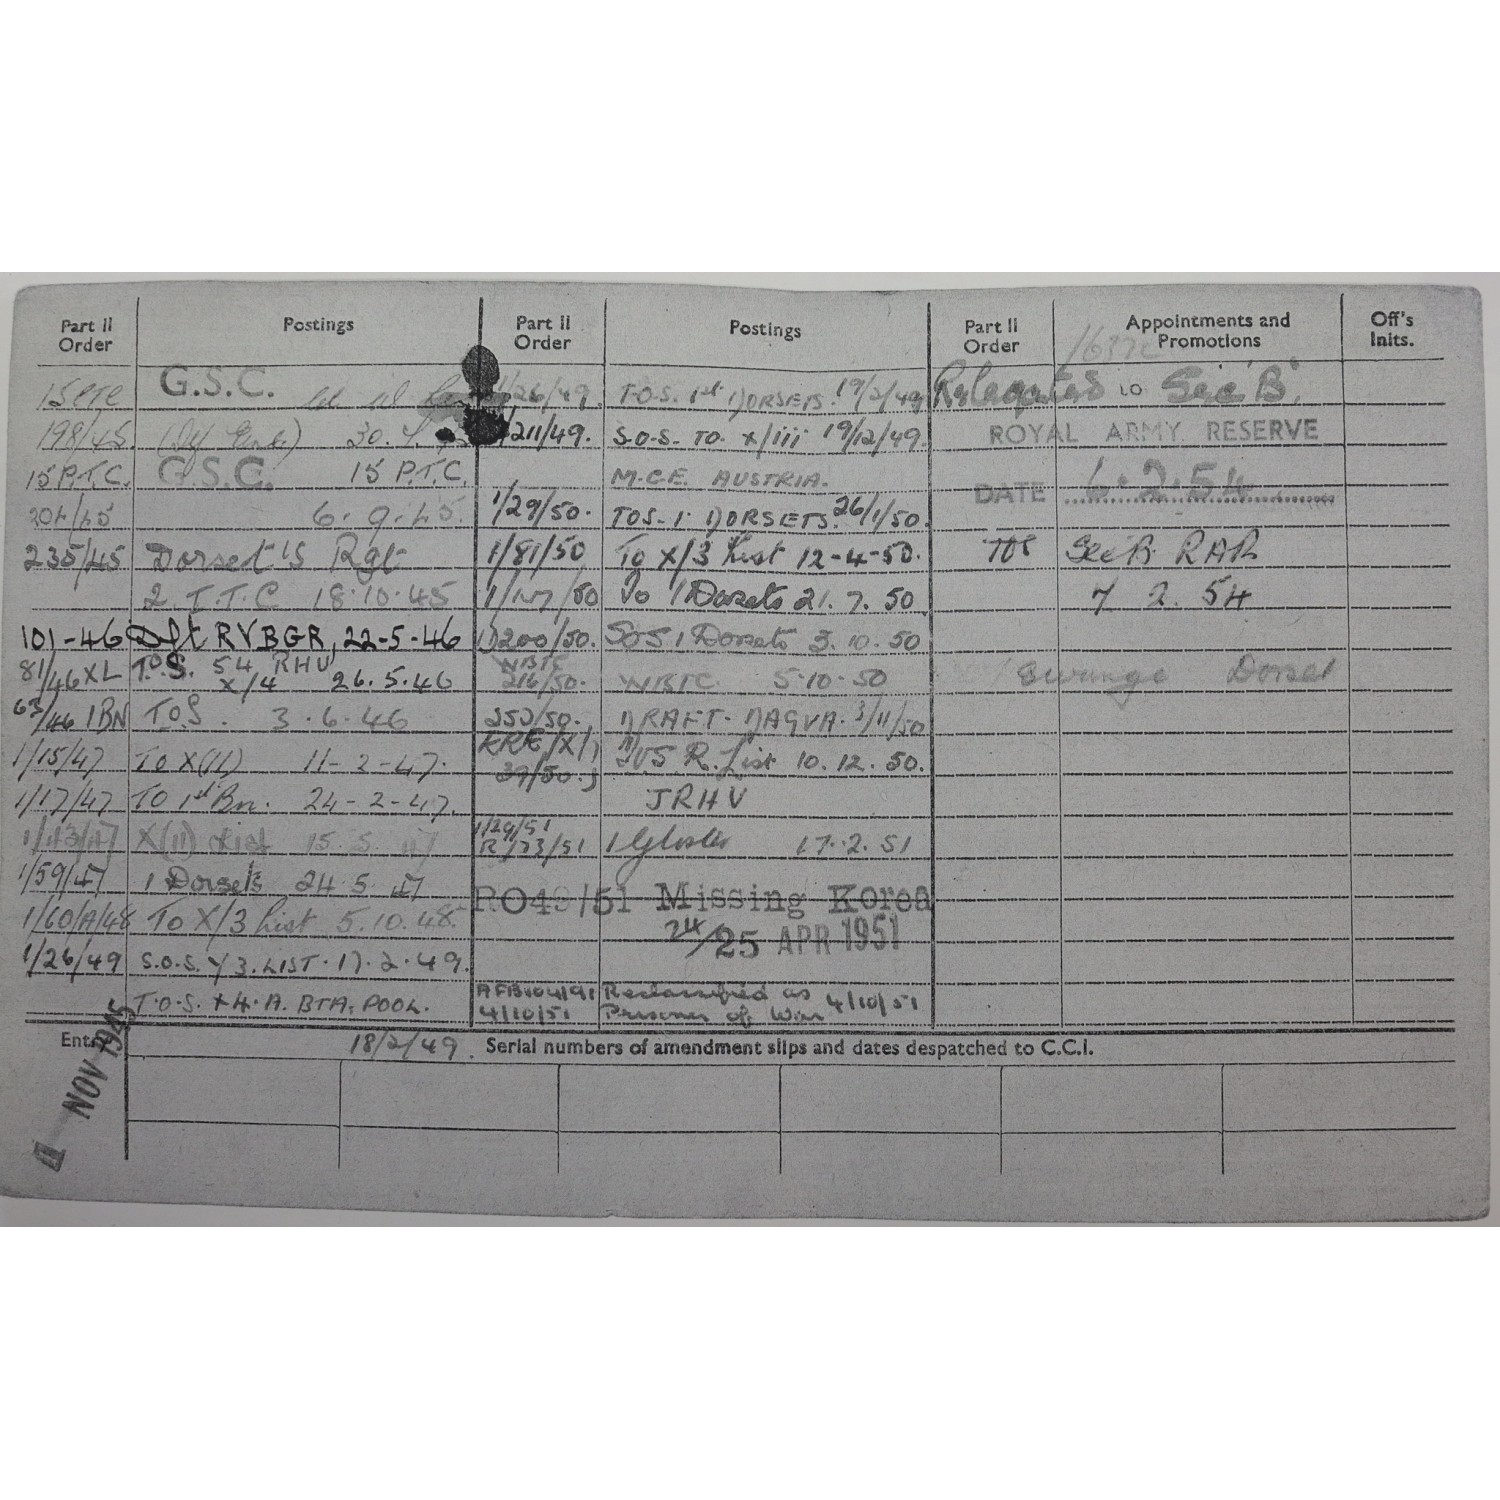 Part II Order
Postings
Part II Order
Postings
Part II Order
Appointments and Promotions
Off's Inits.
G.S.C.
198/45 30.
15 P.T.C. G.S.C. 15 P.T.C.
204/45 6.9.45
235/45 Dorset's Rgt
2 I.T.C 18.10.45
101-46 Dft RVBGR, 22-5-46
81/46 XL T.O.S. 54 RHU X/4 26.5.46
63/46 1BN T.O.S. 3.6.46
1/15/47 To X(11) 11-2-47.
1/17/47 TO 1st Bn. 24-2-47.
1/43/47 X(11) List 15.5.47
1/59/47 1 Dorset's 24.5.47
1/60/A/48 To X/3 List 5.10.48.
1/26/49 S.O.S. Y3. LIST. 17.2.49.
T.O.S. X4.A. BTA. POOL.
18/2/49.
1/26/49. T.O.S. 1st DORSETS. 19/2/49
1/211/49. S.O.S. TO X/iii 19/12/49.
M.C.E. AUSTRIA.
1/29/50. TOS. 1 DORSETS. 26/1/50.
1/81/50 To X/3 List 12-4-50.
1/157/50 To 1 Dorsets 21.7.50
1/200/50. SOS 1 Dorsets 3.10.50
WBTC 216/50. WBTC 5.10.50
252/50. DRAFT. DAGVA. 3/11/50
KRE/X/ 39/50. R. List 10.12.50.
JRHU
1/29/51
R/73/51 1 Glosters 17.2.51
RO49/51 Missing Korea
24/25 APR 1951
AFB104/91 4/10/51 Reclassified as Prisoner of War 4/10/51
Relegated to Sec 'B'.
ROYAL ARMY RESERVE
DATE 6.2.54
TOS Sec B. RAR
7 2. 54
Swanage Dorset
Serial numbers of amendment slips and dates despatched to C.C.I.
NOV 1945